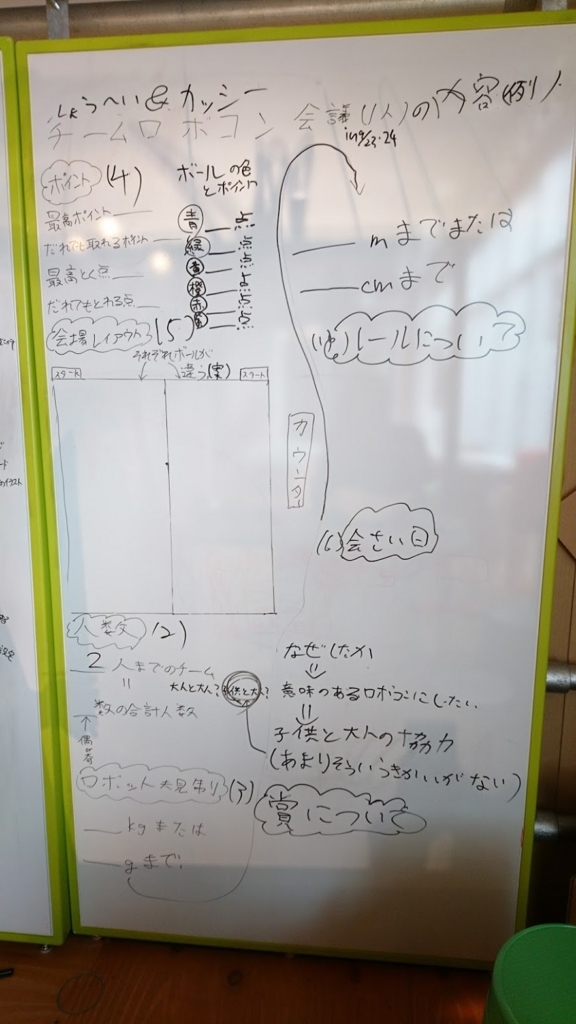 しょうへい&カッシー
チームロボコン 会議(1人)の内容(例)
in9/23・24
ポイント (4)
ボールの色
とポイント
最高ポイント___
だれでも取れるポイント___
最高とく点___
だれでもとれる点___
青__点
緑__点
黄__点
橙__点
赤__点
__点
会場レイアウト (5)
それぞれボールが
違う(案)
スタート
スタート
カウンター
___mまでまたは
___cmまで
ルールについて
会さい日
人数 (2)
2 人までのチーム
大人と大人? 子供と大人?
数の合計人数
偶
奇
なぜしたか
意味のあるロボコンにしたい
子供と大人の協力
(あまりそういうきかいがない)
___kgまたは
___gまで
賞について